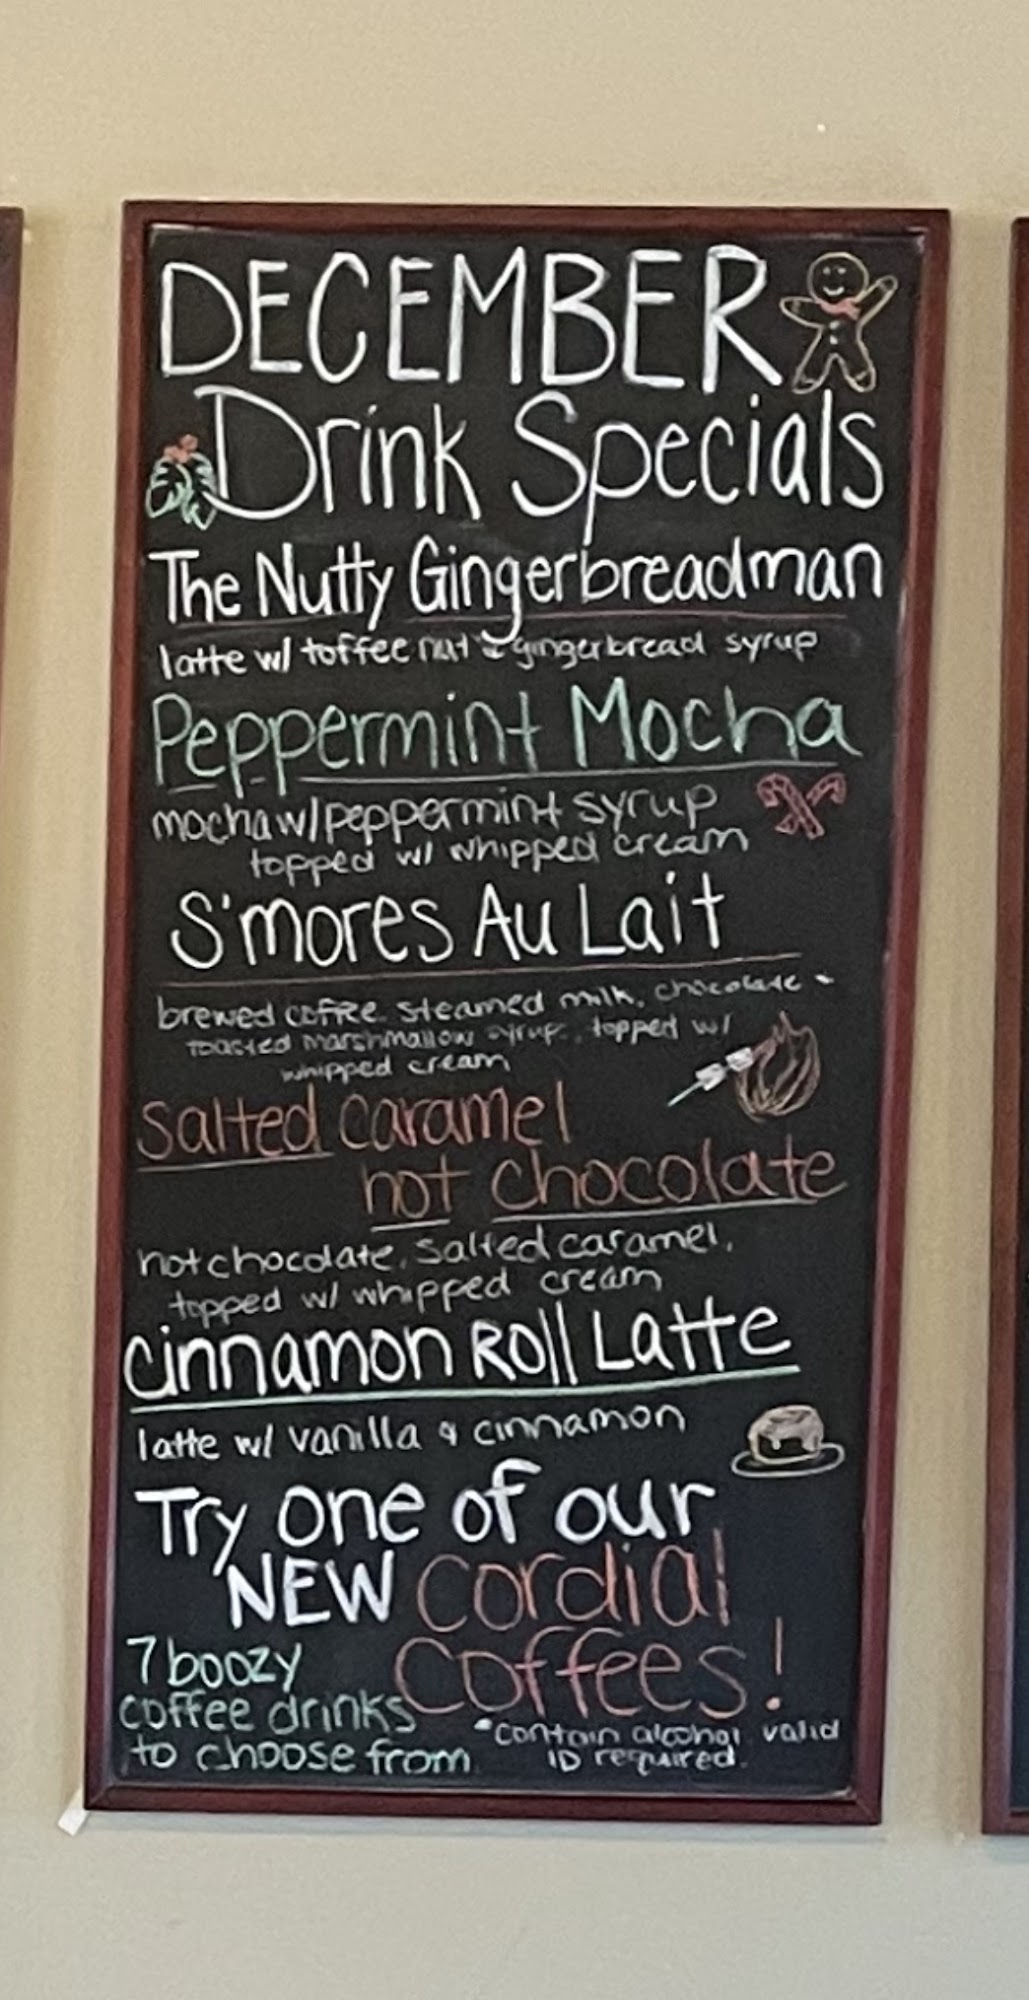 DECEMBER
Drink Specials
The Nutty Gingerbreadman
latte w/ toffee nut & gingerbread syrup
Peppermint Mocha
mocha w/ peppermint syrup
topped w/ whipped cream
S'mores Au Lait
brewed coffee, steamed milk, chocolate &
toasted marshmallow syrup, topped w/
whipped cream
Salted Caramel
hot chocolate
hot chocolate, salted caramel,
topped w/ whipped cream
Cinnamon Roll Latte
latte w/ vanilla & cinnamon
Try one of our
NEW Cordial
Coffees!
7 boozy
coffee drinks
to choose from
*contain alcohol valid
ID required.